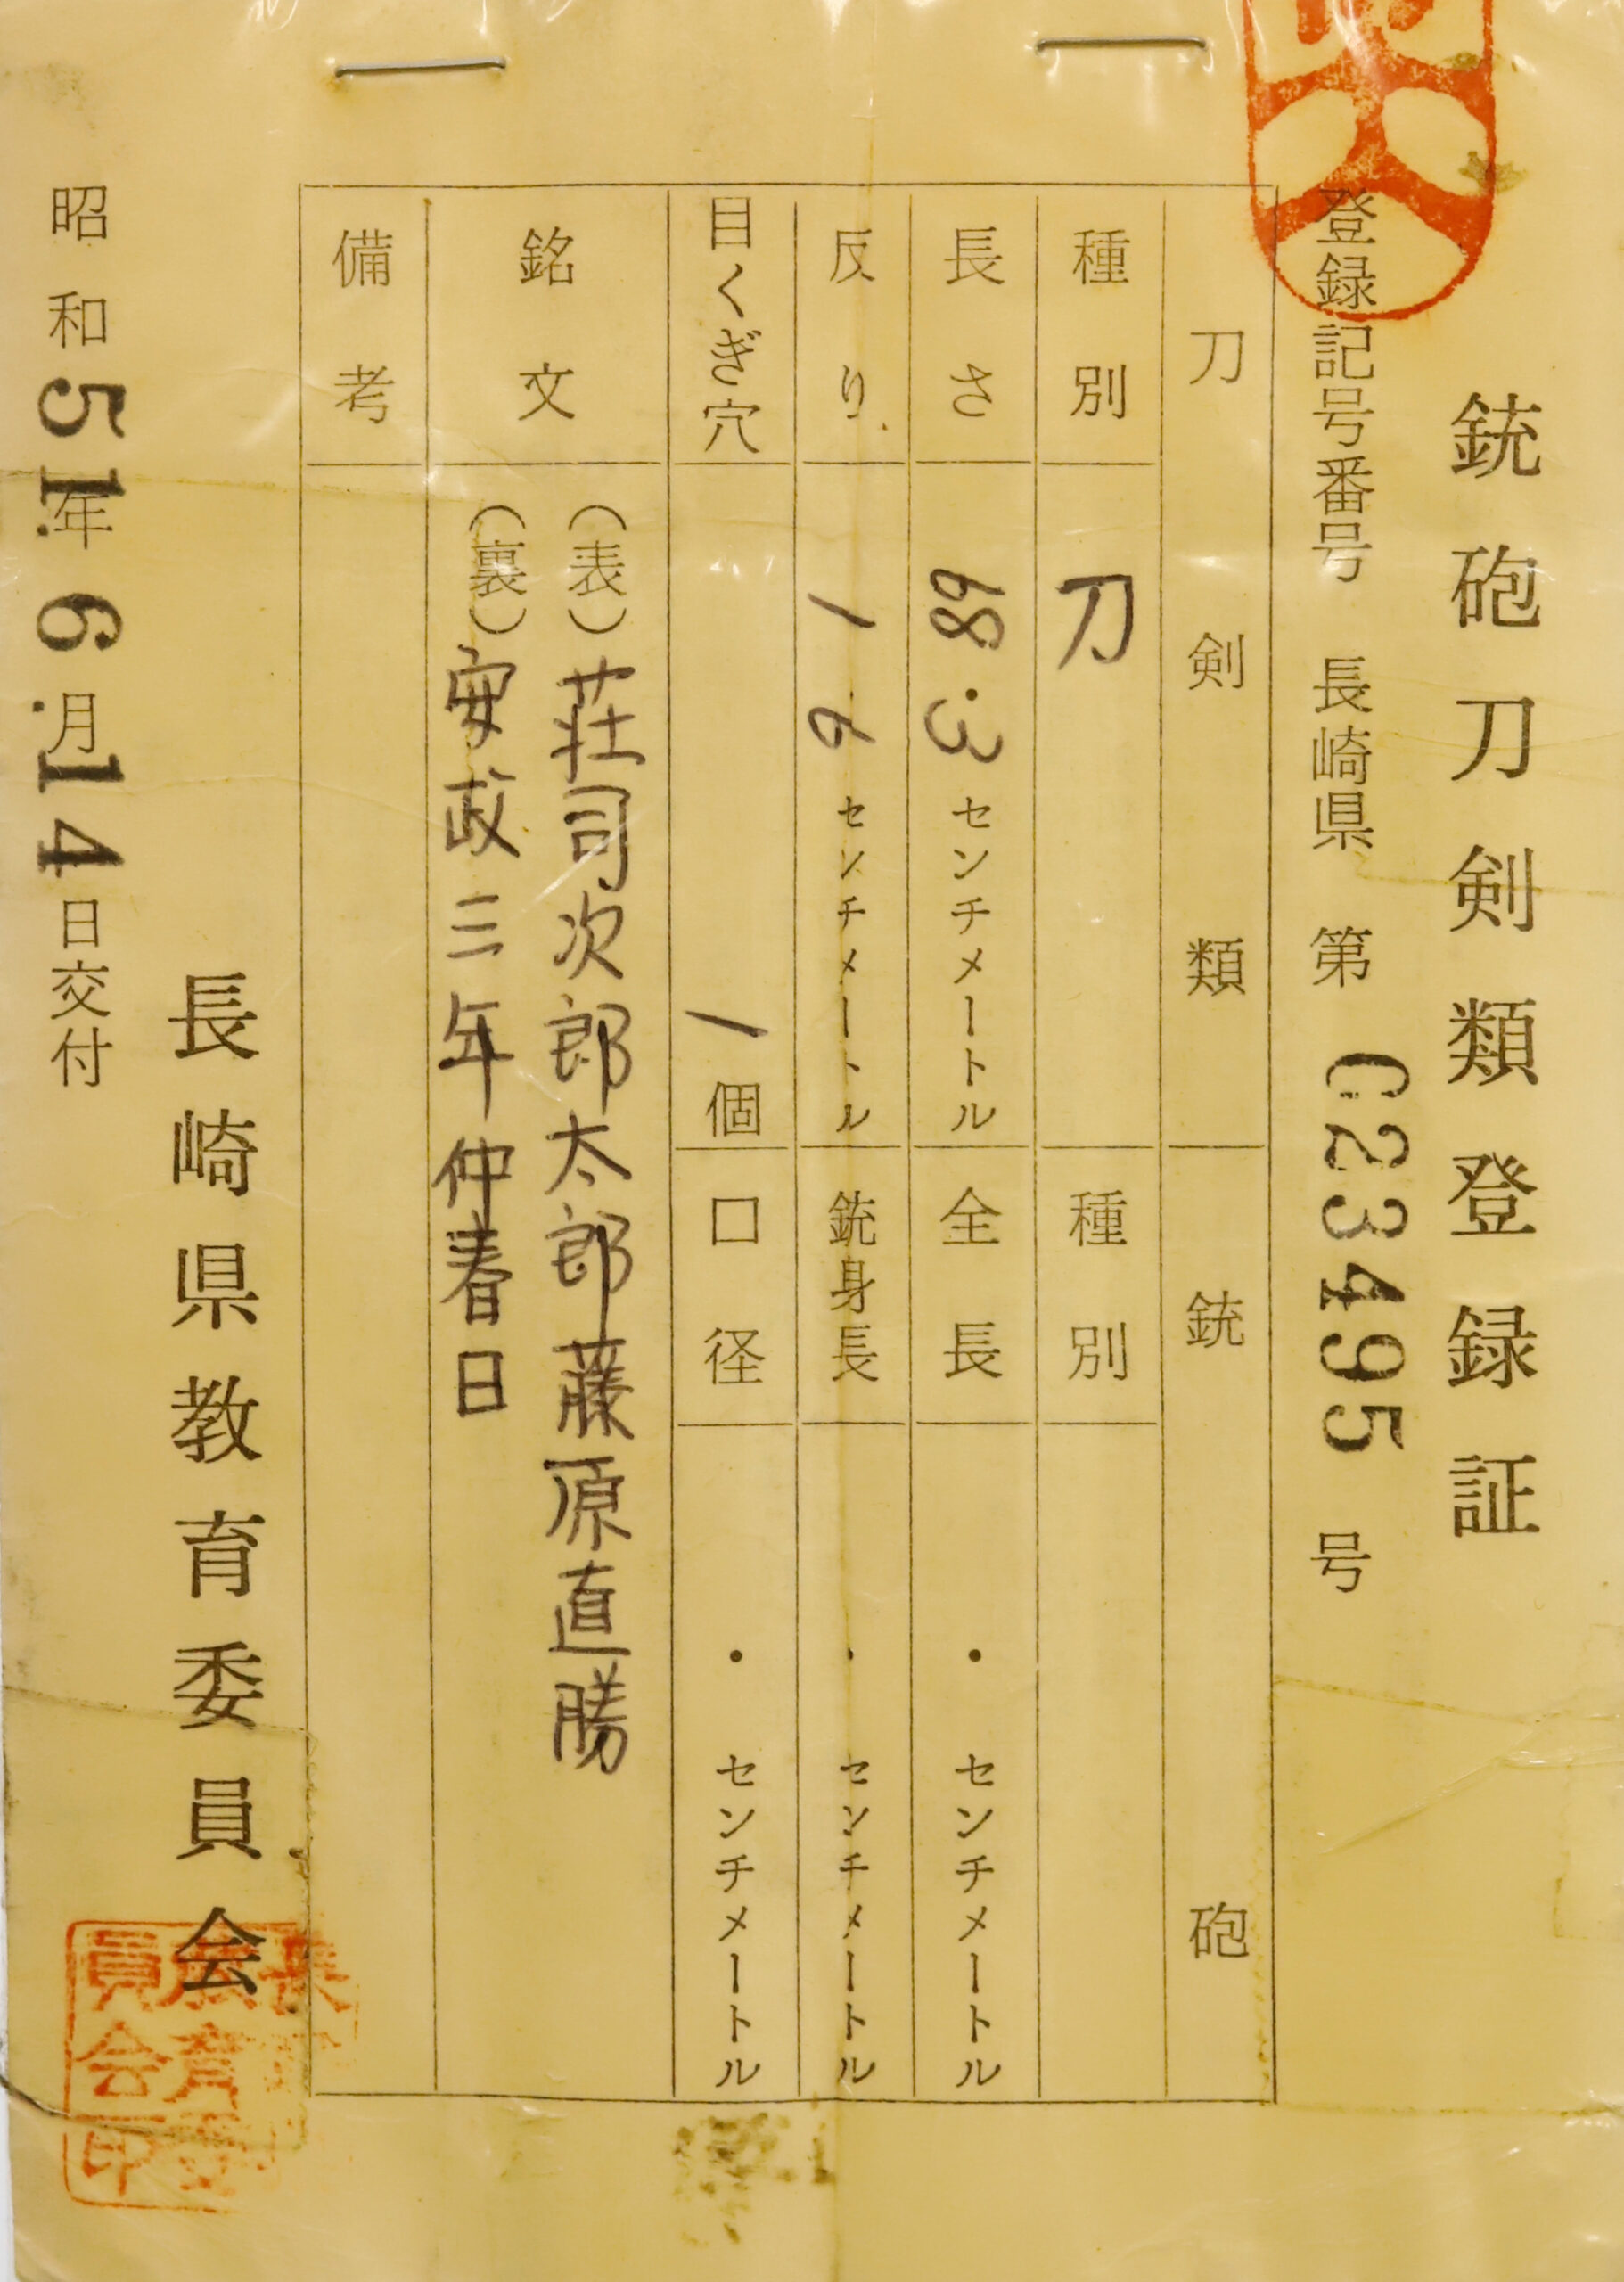 銃砲刀剣類登録証
登録記号番号 長崎県 第 C23495 号
刀剣類
銃砲
種別 刀
種別
長さ 68.3 センチメートル
全長 ・ センチメートル
反り 1.6 センチメートル
銃身長 ・ センチメートル
目くぎ穴 1個
口径 ・ センチメートル
銘文
(表)荘司次郎太郎藤原直勝
(裏)安政三年仲春日
備考
長崎県教育委員会
昭和51年6月14日交付